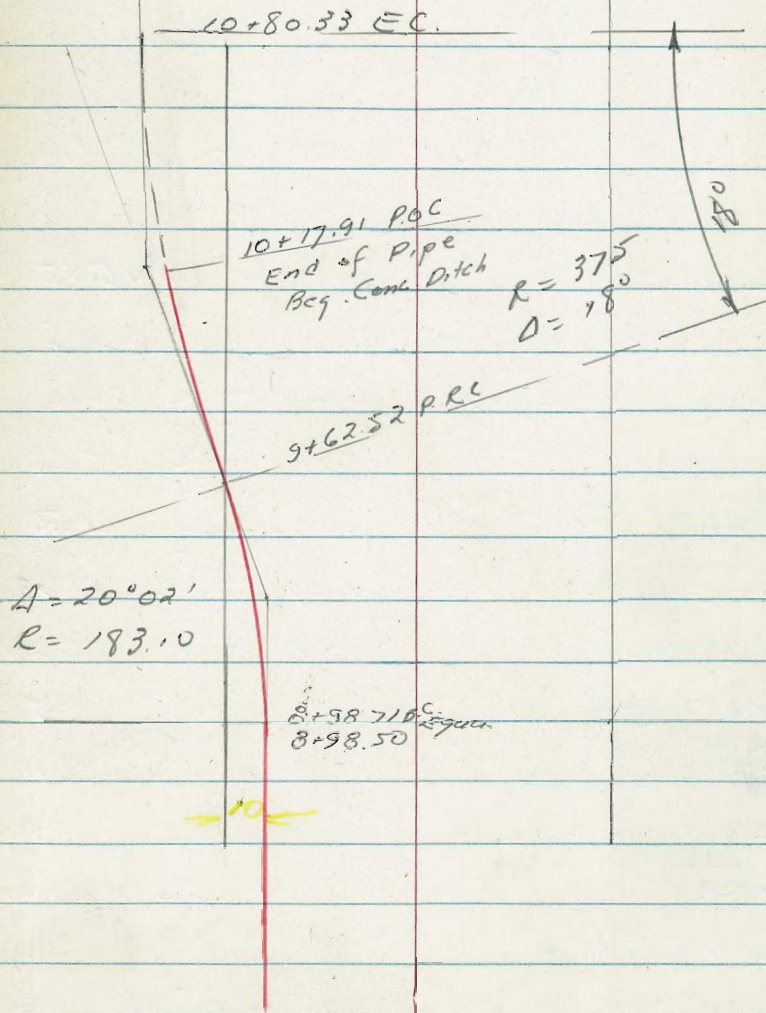 10+80.33 EC.
18°
10+17.91 P.O.C
End of Pipe
Beg. Conc Ditch
R = 375
Δ = 18°
9+62.52 P.R.C
Δ = 20°02'
R = 183.10
8+98.71 B.C.
8+98.50
10